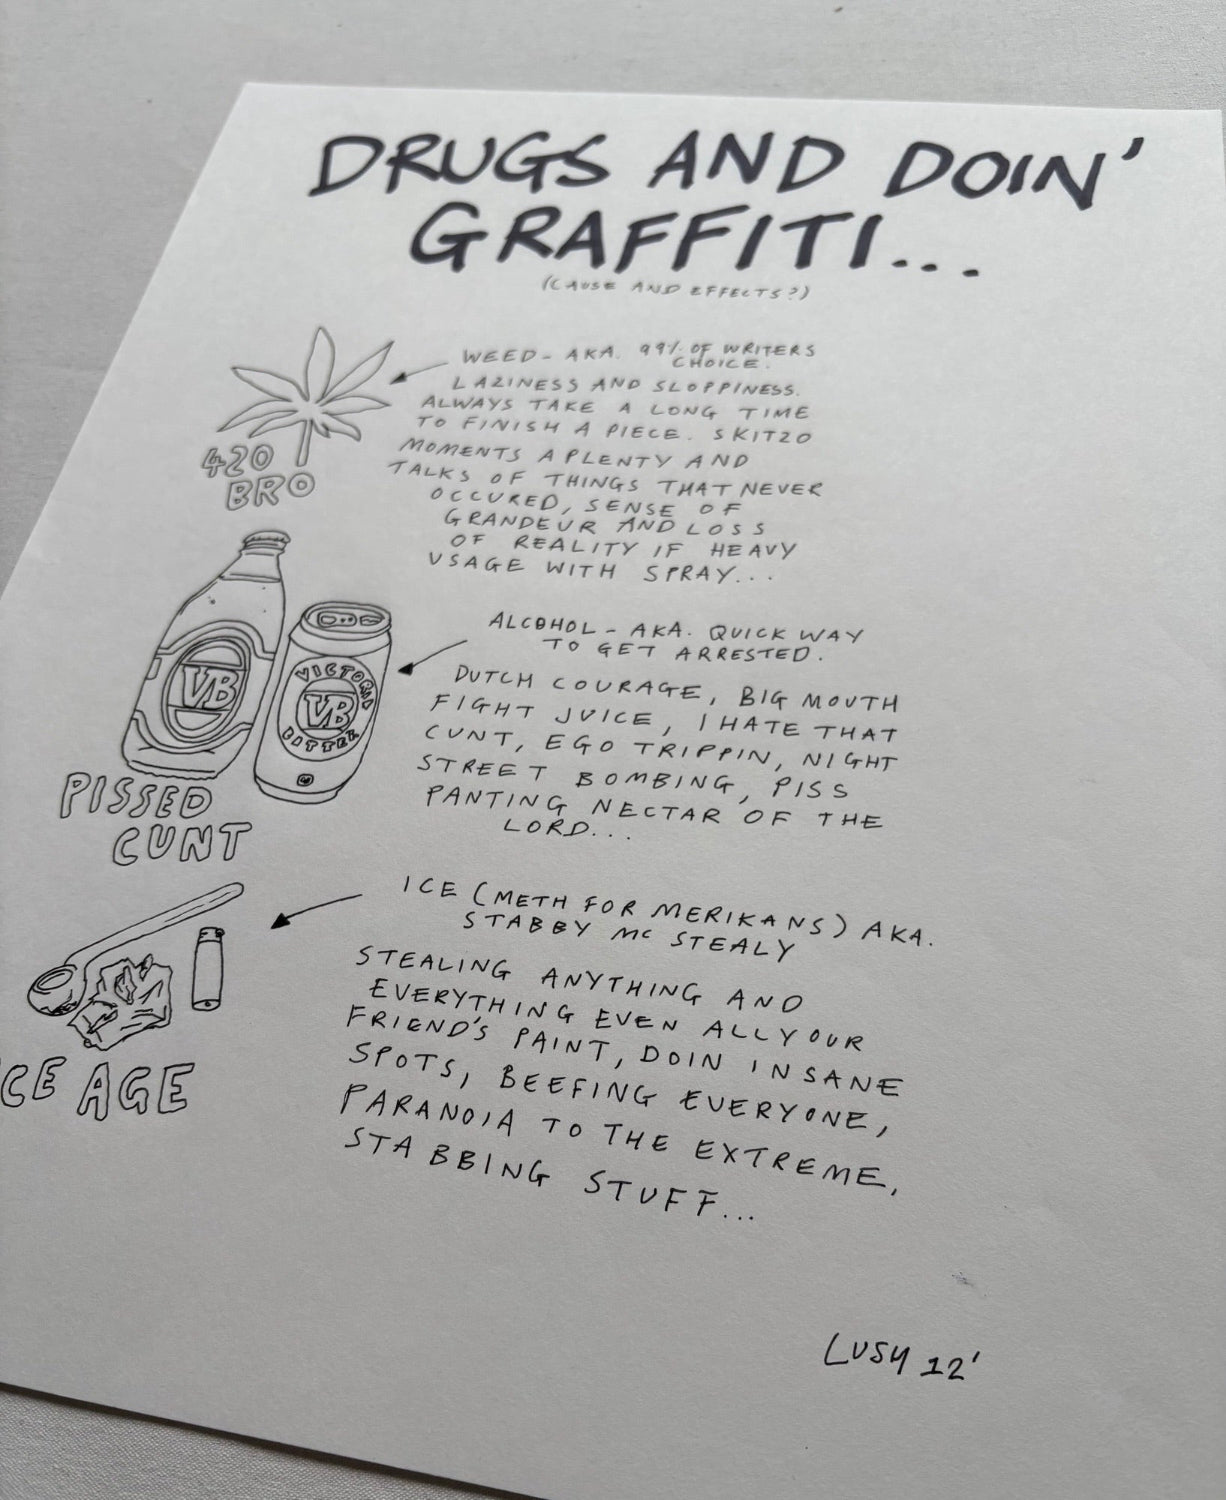 DRUGS AND DOIN'
GRAFFITI...
(CAUSE AND EFFECTS?)
WEED - AKA. 99% OF WRITERS
CHOICE.
LAZINESS AND SLOPPINESS.
ALWAYS TAKE A LONG TIME
TO FINISH A PIECE. SKITZO
MOMENTS APLENTY AND
TALKS OF THINGS THAT NEVER
OCCURED, SENSE OF
GRANDEUR AND LOSS
OF REALITY IF HEAVY
USAGE WITH SPRAY...
420
BRO
ALCOHOL - AKA. QUICK WAY
TO GET ARRESTED.
DUTCH COURAGE, BIG MOUTH
FIGHT JUICE, I HATE THAT
CUNT, EGO TRIPPIN, NIGHT
STREET BOMBING, PISS
PANTING NECTAR OF THE
LORD...
VB
VICTORIA
VB
BITTER
PISSED
CUNT
ICE (METH FOR MERIKANS) AKA.
STABBY MC STEALY
STEALING ANYTHING AND
EVERYTHING EVEN ALL YOUR
FRIEND'S PAINT, DOIN INSANE
SPOTS, BEEFING EVERYONE,
PARANOIA TO THE EXTREME,
STABBING STUFF...
CE AGE
LUSH 12'